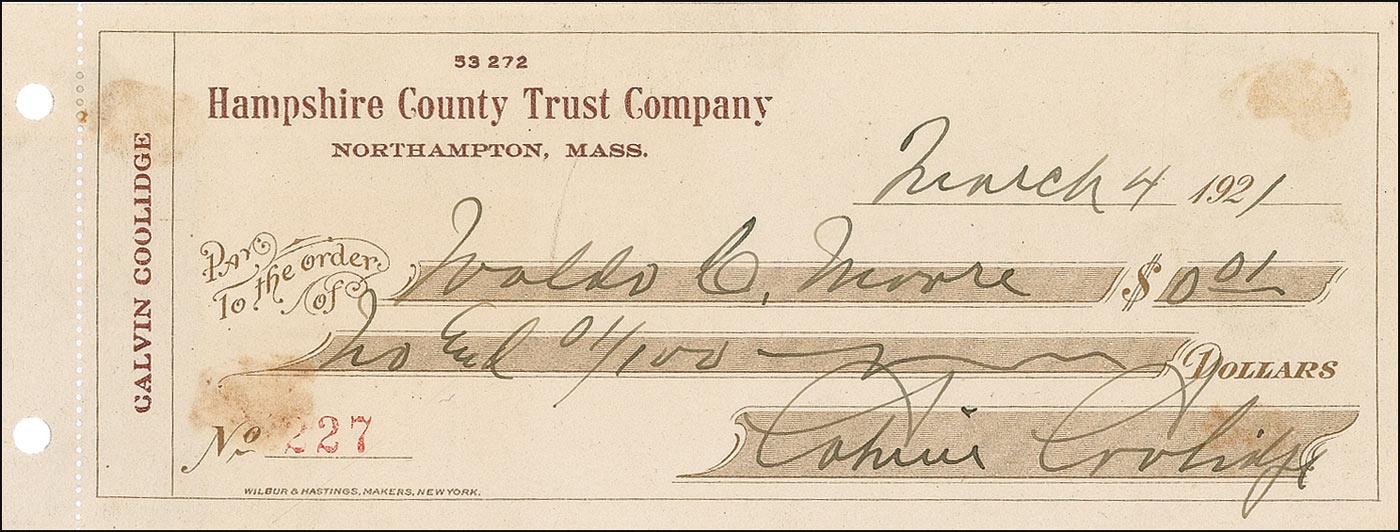 53 272
Hampshire County Trust Company
NORTHAMPTON, MASS.
March 4 1921
PAY To the order of Waldo C. Moore $ 0 01
No and 01/100 DOLLARS
No. 227
Calvin Coolidge
WILBUR & HASTINGS, MAKERS, NEW YORK.
CALVIN COOLIDGE